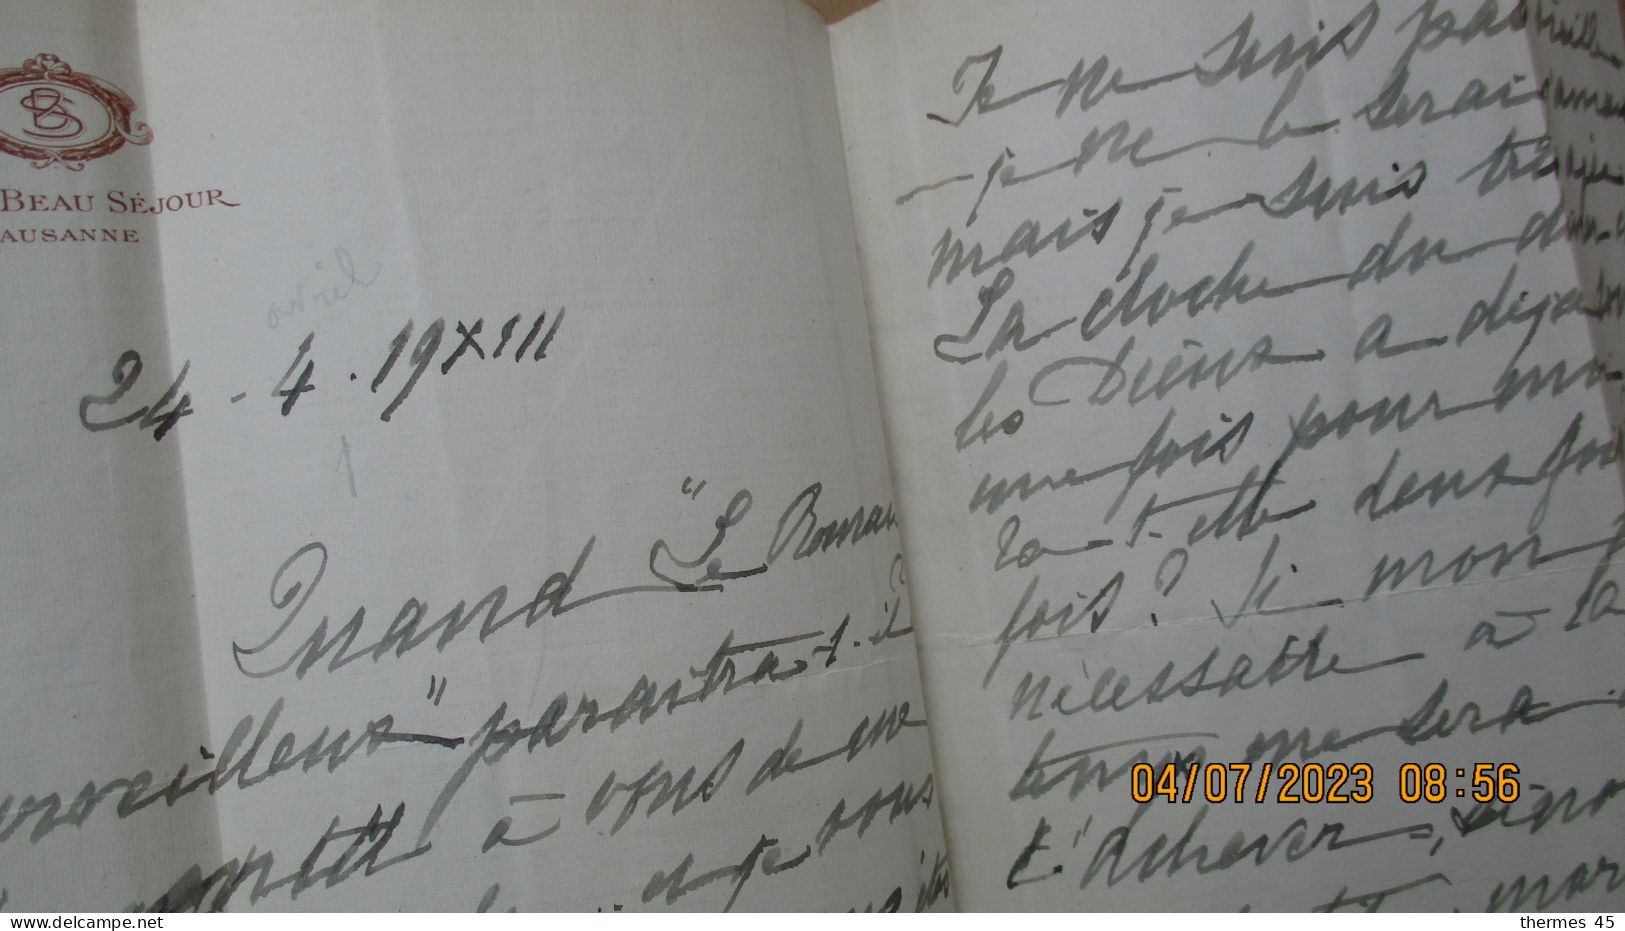 BS
BEAU SÉJOUR
AUSANNE
avril
24-4.19XIII
1
Quand "Le Roman
erveilleux" paraîtra-t-il?
à vous de me
et je vous
Je ne suis pas vieille
- je ne le serai jamais
mais je suis très
La cloche du
les Dieux a déjà
une fois pour moi
ra-t-elle deux fois
fois? Si mon
nécessaire à la
temps me sera
t'achever,
04/07/2023 08:56
www.delcampe.net
thermes 45